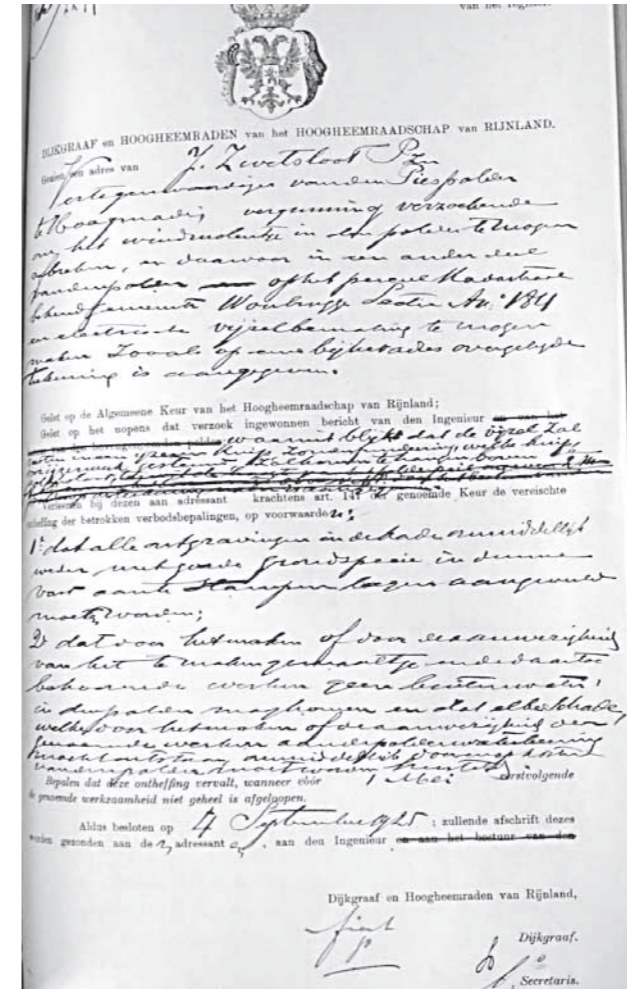 van het register.
DIJKGRAAF en HOOGHEEMRADEN van het HOOGHEEMRAADSCHAP van RIJNLAND.
Gezien een adres van J. Zwetsloot Pzn
Vertegenwoordiger van den Piespolder
te Hoogmade, vergunning verzoekende
om het windmolentje in den polder te mogen
afbreken, en daarvoor in een ander deel
van den polder op het perceel Kadastraal
bekend gemeente Woubrugge Sectie A no. 1811
en electrische vijzelbemaling te mogen
maken zooals op eene bij het adres overgelegde
teekening is aangegeven.
Gelet op de Algemeene Keur van het Hoogheemraadschap van Rijnland;
Gelet op het nopens dat verzoek ingewonnen bericht van den Ingenieur en van het
waaruit blijkt dat de vijzel zal
Verleenen bij dezen aan adressant krachtens art. 141 der genoemde Keur de vereischte
ontheffing der betrokken verbodsbepalingen, op voorwaarde
1o dat alle ontgravingen in de kade onmiddellijk
weder met goede grondspecie in dunne
vast aan te stampen lagen aangevuld
moeten worden;
2o dat door het maken of door de aanwezigheid
van het te maken gemaaltje en de daartoe
behoorende werken geen buitenwater
in den polder mag komen en dat elke schade,
welke door het maken of de aanwezigheid der
genoemde werken aan de polderwaterkeering
mocht ontstaan, onmiddellijk
van den polder moet worden hersteld
Bepalen dat deze ontheffing vervalt, wanneer vóór 1 Mei eerstvolgende
de genoemde werkzaamheid niet geheel is afgeloopen.
Aldus besloten op 4 September 1925; zullende afschrift dezes
worden gezonden aan de adressant, aan den Ingenieur en aan het bestuur van den
Dijkgraaf en Hoogheemraden van Rijnland,
fiat
Dijkgraaf.
Secretaris.